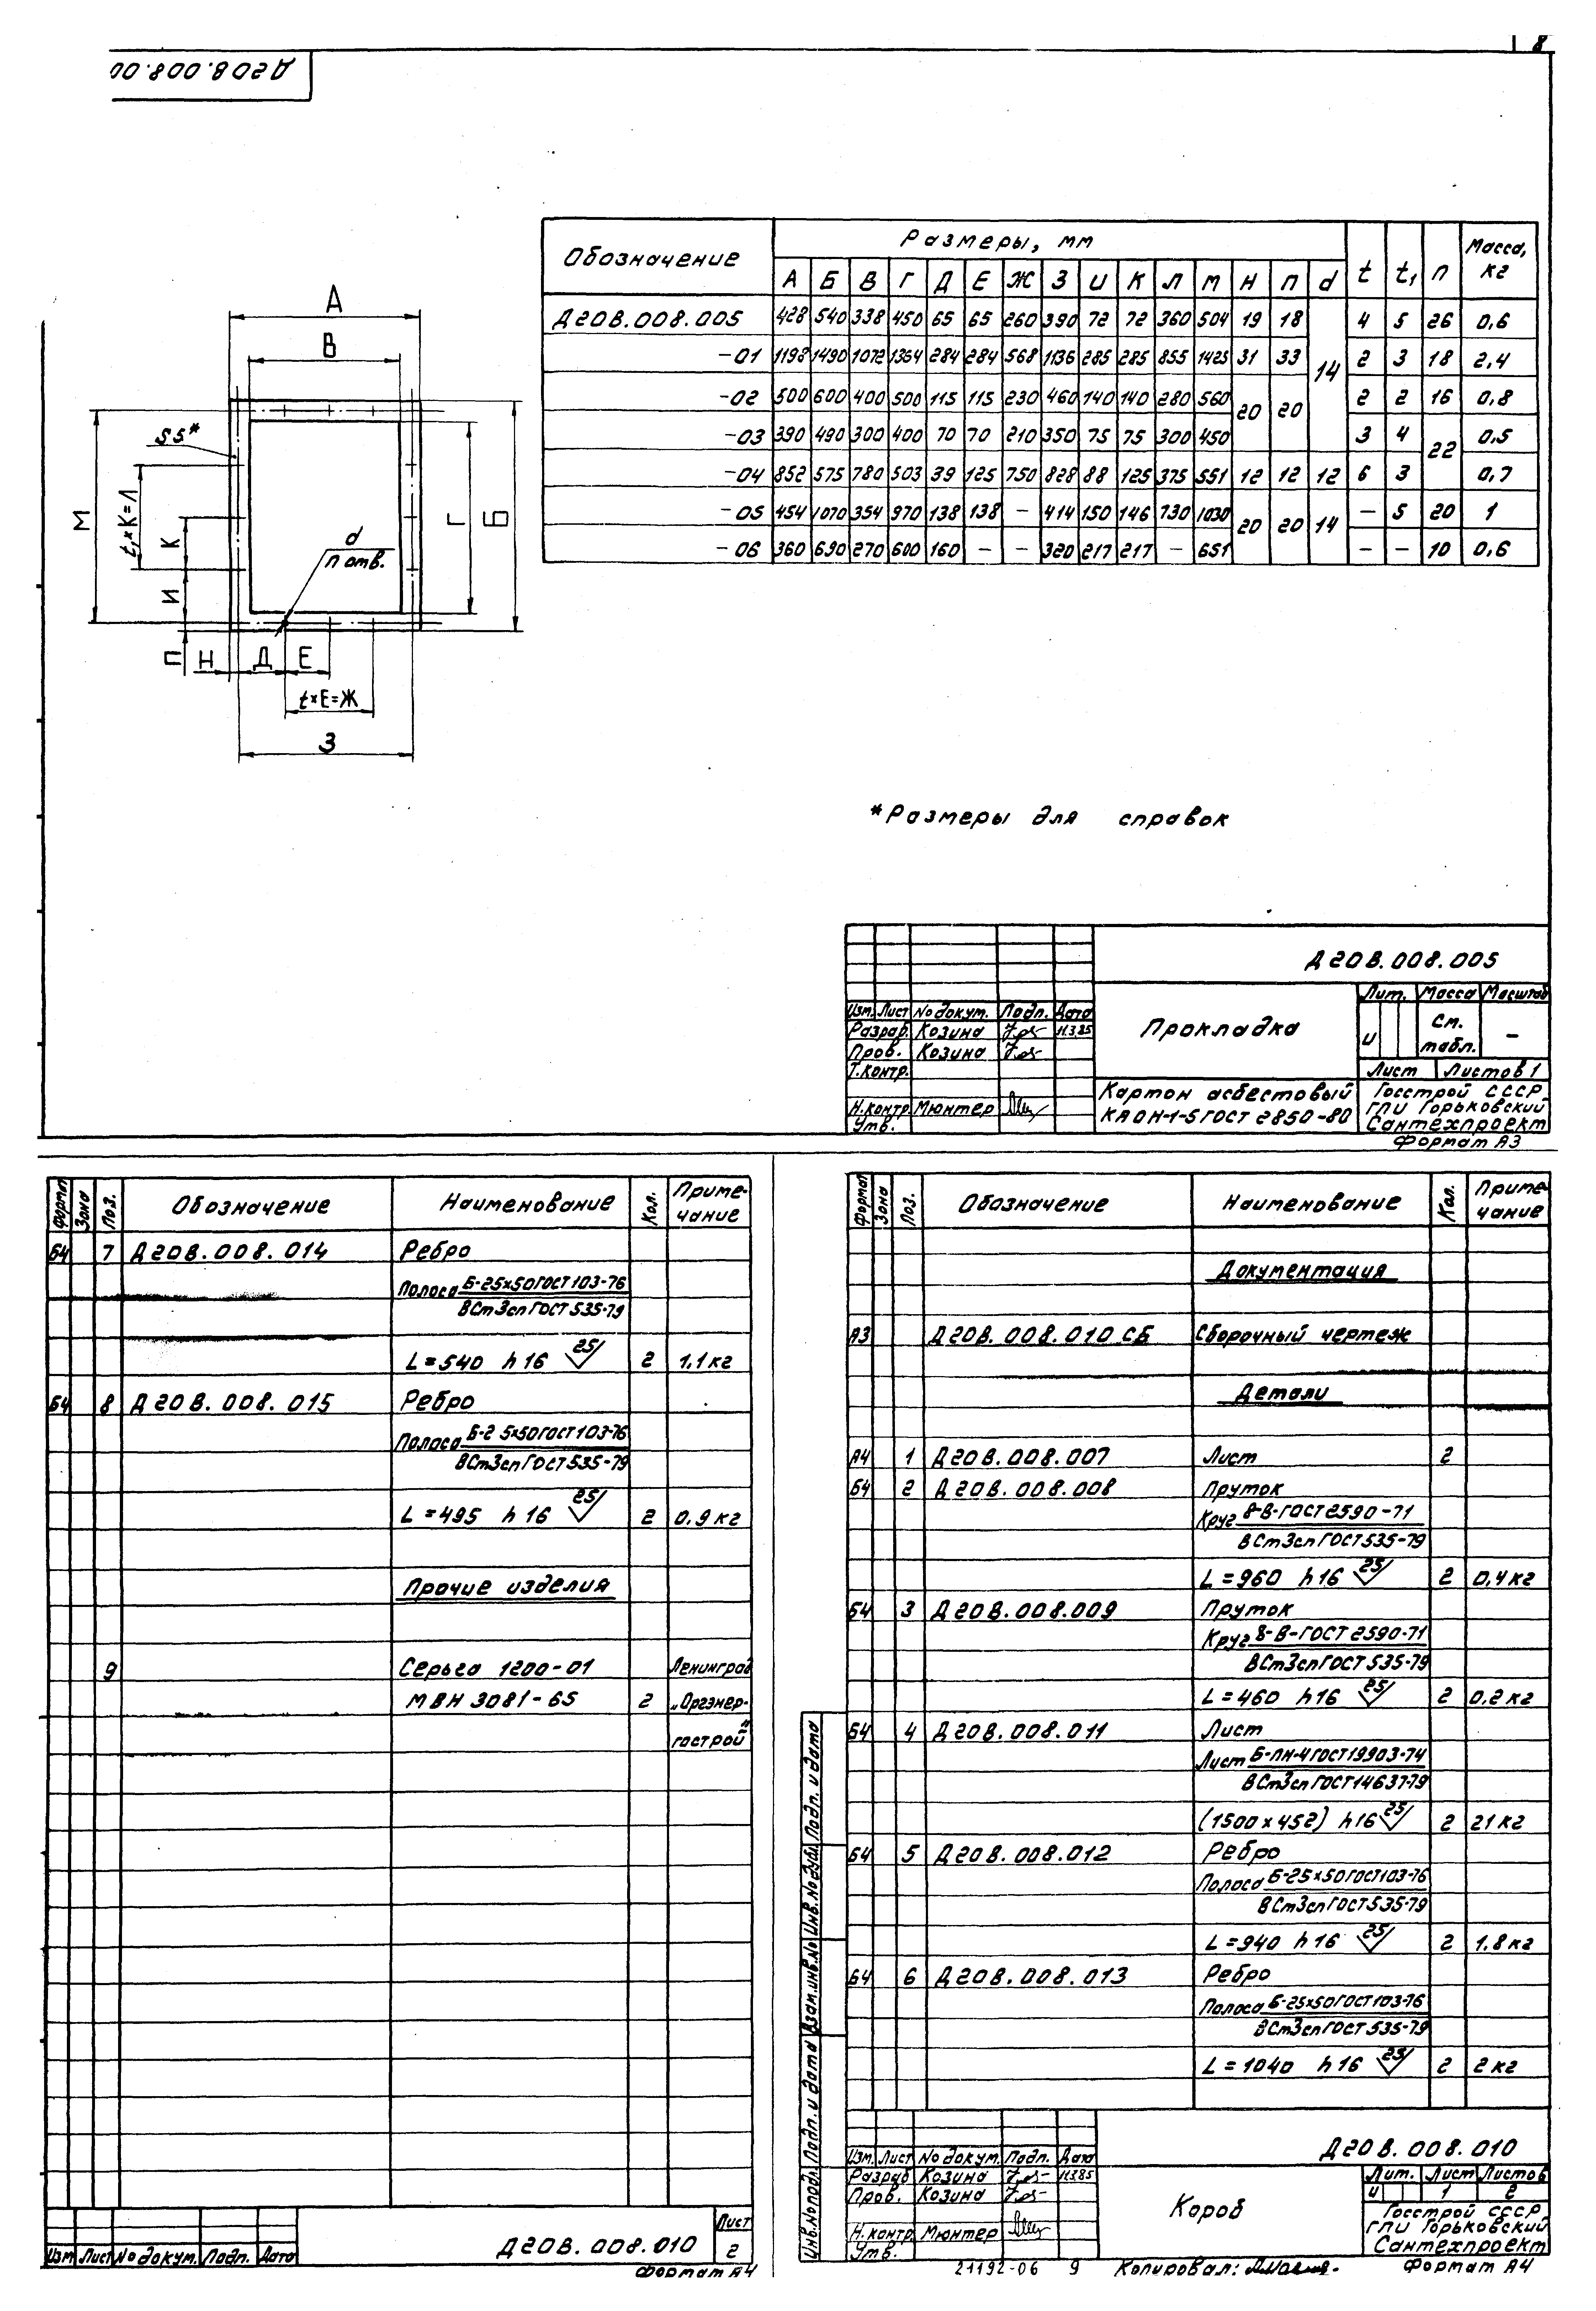 8
Д20В.008.00
Обозначение | Размеры, мм | t | t₁ | n | Масса, кг
А | Б | В | Г | Д | Е | Ж | З | И | К | Л | М | Н | П | d
Д20В.008.005 | 428 | 540 | 338 | 450 | 65 | 65 | 260 | 390 | 72 | 72 | 360 | 504 | 19 | 18 | 14 | 4 | 5 | 26 | 0,6
-01 | 1198 | 1490 | 1072 | 1364 | 284 | 284 | 568 | 1136 | 285 | 285 | 855 | 1425 | 31 | 33 | 2 | 3 | 18 | 2,4
-02 | 500 | 600 | 400 | 500 | 115 | 115 | 230 | 460 | 140 | 140 | 280 | 560 | 20 | 20 | 2 | 2 | 16 | 0,8
-03 | 390 | 490 | 300 | 400 | 70 | 70 | 210 | 350 | 75 | 75 | 300 | 450 | 3 | 4 | 22 | 0,5
-04 | 852 | 575 | 780 | 503 | 39 | 125 | 750 | 828 | 88 | 125 | 375 | 551 | 12 | 12 | 12 | 6 | 3 | 0,7
-05 | 454 | 1070 | 354 | 970 | 138 | 138 | - | 414 | 150 | 146 | 730 | 1030 | 20 | 20 | 14 | - | 5 | 20 | 1
-06 | 360 | 690 | 270 | 600 | 160 | - | - | 320 | 217 | 217 | - | 651 | - | - | 10 | 0,6
А
В
S5*
М
t₁×К=Л
К
И
П
d
n отв.
Г
Б
Н
Д
Е
t×Е=Ж
З
*Размеры для справок
Д20В.008.005
Изм. Лист № докум. Подп. Дата
Разраб. Козина 11.3.85
Пров. Козина
Т.контр.
Н.контр. Мюнтер
Утв.
Прокладка
Лит. Масса Масштаб
и См. табл. -
Лист Листов 1
Картон асбестовый
КАОН-1-5 ГОСТ 2850-80
Госстрой СССР
ГПИ Горьковский
Сантехпроект
Формат А3
Формат Зона Поз. Обозначение Наименование Кол. Примечание
Б4 7 Д20В.008.014 Ребро
Полоса Б-25х50 ГОСТ 103-76
ВСт3сп ГОСТ 535-79
L=540 h16 25 2 1,1кг
Б4 8 Д20В.008.015 Ребро
Полоса Б-25х50 ГОСТ 103-76
ВСт3сп ГОСТ 535-79
L=495 h16 25 2 0,9кг
Прочие изделия
9 Серьга 1200-01 Ленинград
МВН 3081-65 2 „Оргэнер-
гострой"
Изм Лист № докум. Подп. Дата
Д20В.008.010
Лист
2
Формат А4
Формат Зона Поз. Обозначение Наименование Кол. Примечание
Документация
А3 Д20В.008.010 СБ Сборочный чертеж
Детали
А4 1 Д20В.008.007 Лист 2
Б4 2 Д20В.008.008 Пруток
Круг 8-В-ГОСТ 2590-71
ВСт3сп ГОСТ 535-79
L=960 h16 25 2 0,4кг
Б4 3 Д20В.008.009 Пруток
Круг 8-В-ГОСТ 2590-71
ВСт3сп ГОСТ 535-79
L=460 h16 25 2 0,2кг
Б4 4 Д20В.008.011 Лист
Лист Б-ПН-4 ГОСТ 19903-74
ВСт3сп ГОСТ 14637-79
(1500х452) h16 25 2 21кг
Б4 5 Д20В.008.012 Ребро
Полоса Б-25х50 ГОСТ 103-76
ВСт3сп ГОСТ 535-79
L=940 h16 25 2 1,8кг
Б4 6 Д20В.008.013 Ребро
Полоса Б-25х50 ГОСТ 103-76
ВСт3сп ГОСТ 535-79
L=1040 h16 25 2 2кг
Инв.№подл. Подп. и дата Взам.инв.№ Инв.№дубл. Подп. и дата
Д20В.008.010
Изм. Лист № докум. Подп. Дата
Разраб Козина 11.3.85
Пров. Козина
Н.контр Мюнтер
Утв.
Короб
Лит. Лист Листов
и 1 2
Госстрой СССР
ГПИ Горьковский
Сантехпроект
21192-06 9 Копировал: Формат А4